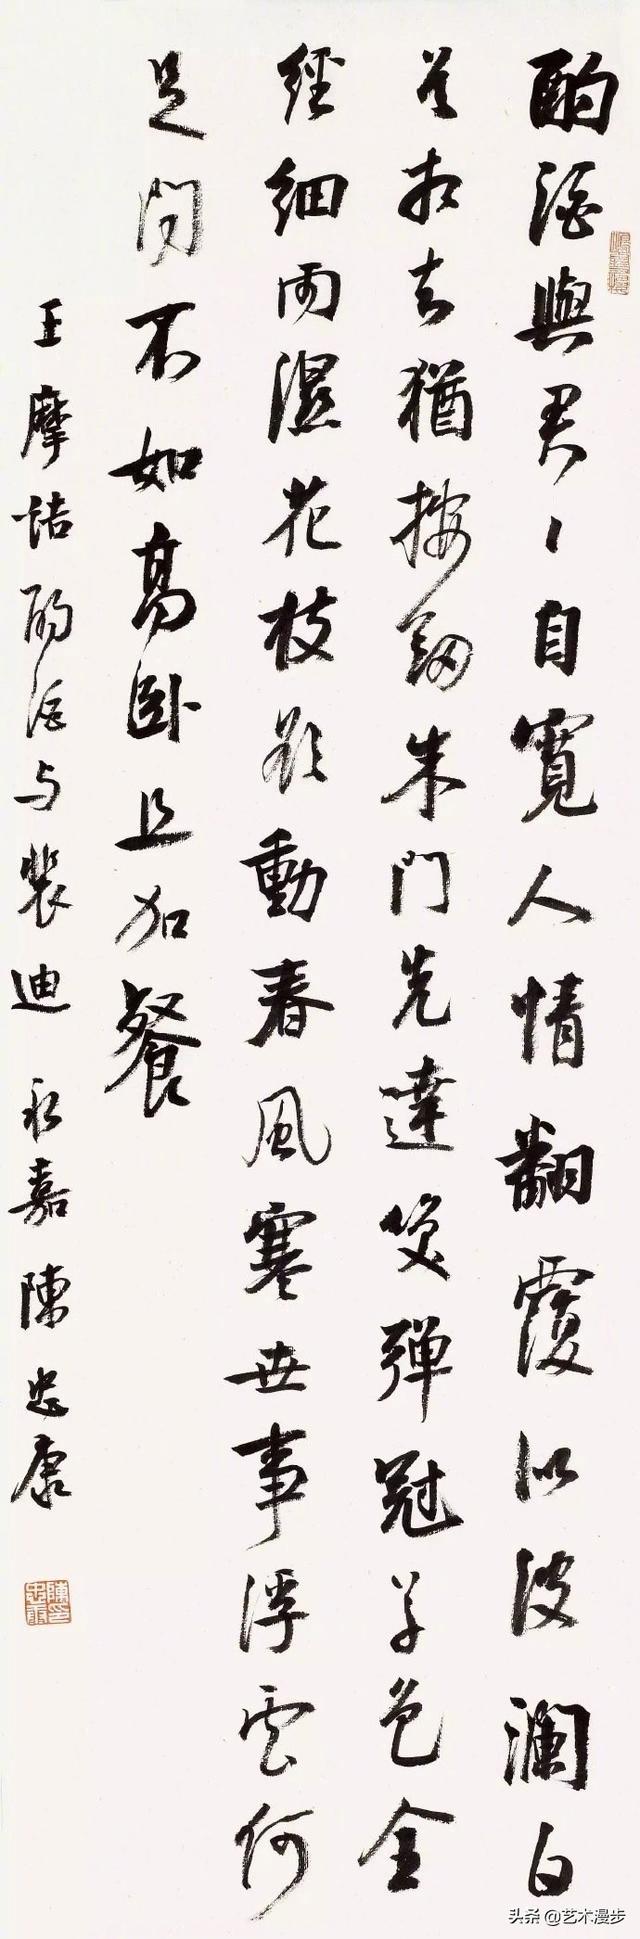 酌酒與君々自寬人情翻覆似波瀾白
首相知猶按劍朱門先達笑彈冠草色全
經細雨濕花枝欲動春風寒世事浮雲何
足問不如高卧且加餐
王摩詰酌酒与裴迪 永嘉陳忠康
陳印忠康
头条 @艺术漫步